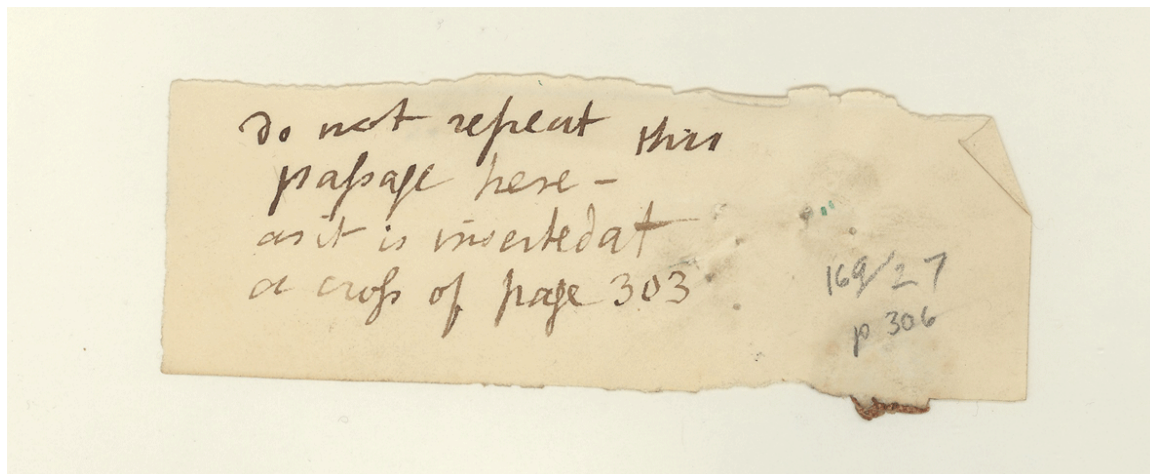 do not repeat this
passage here –
as it is inserted at
a cross of page 303
169/27
p 306